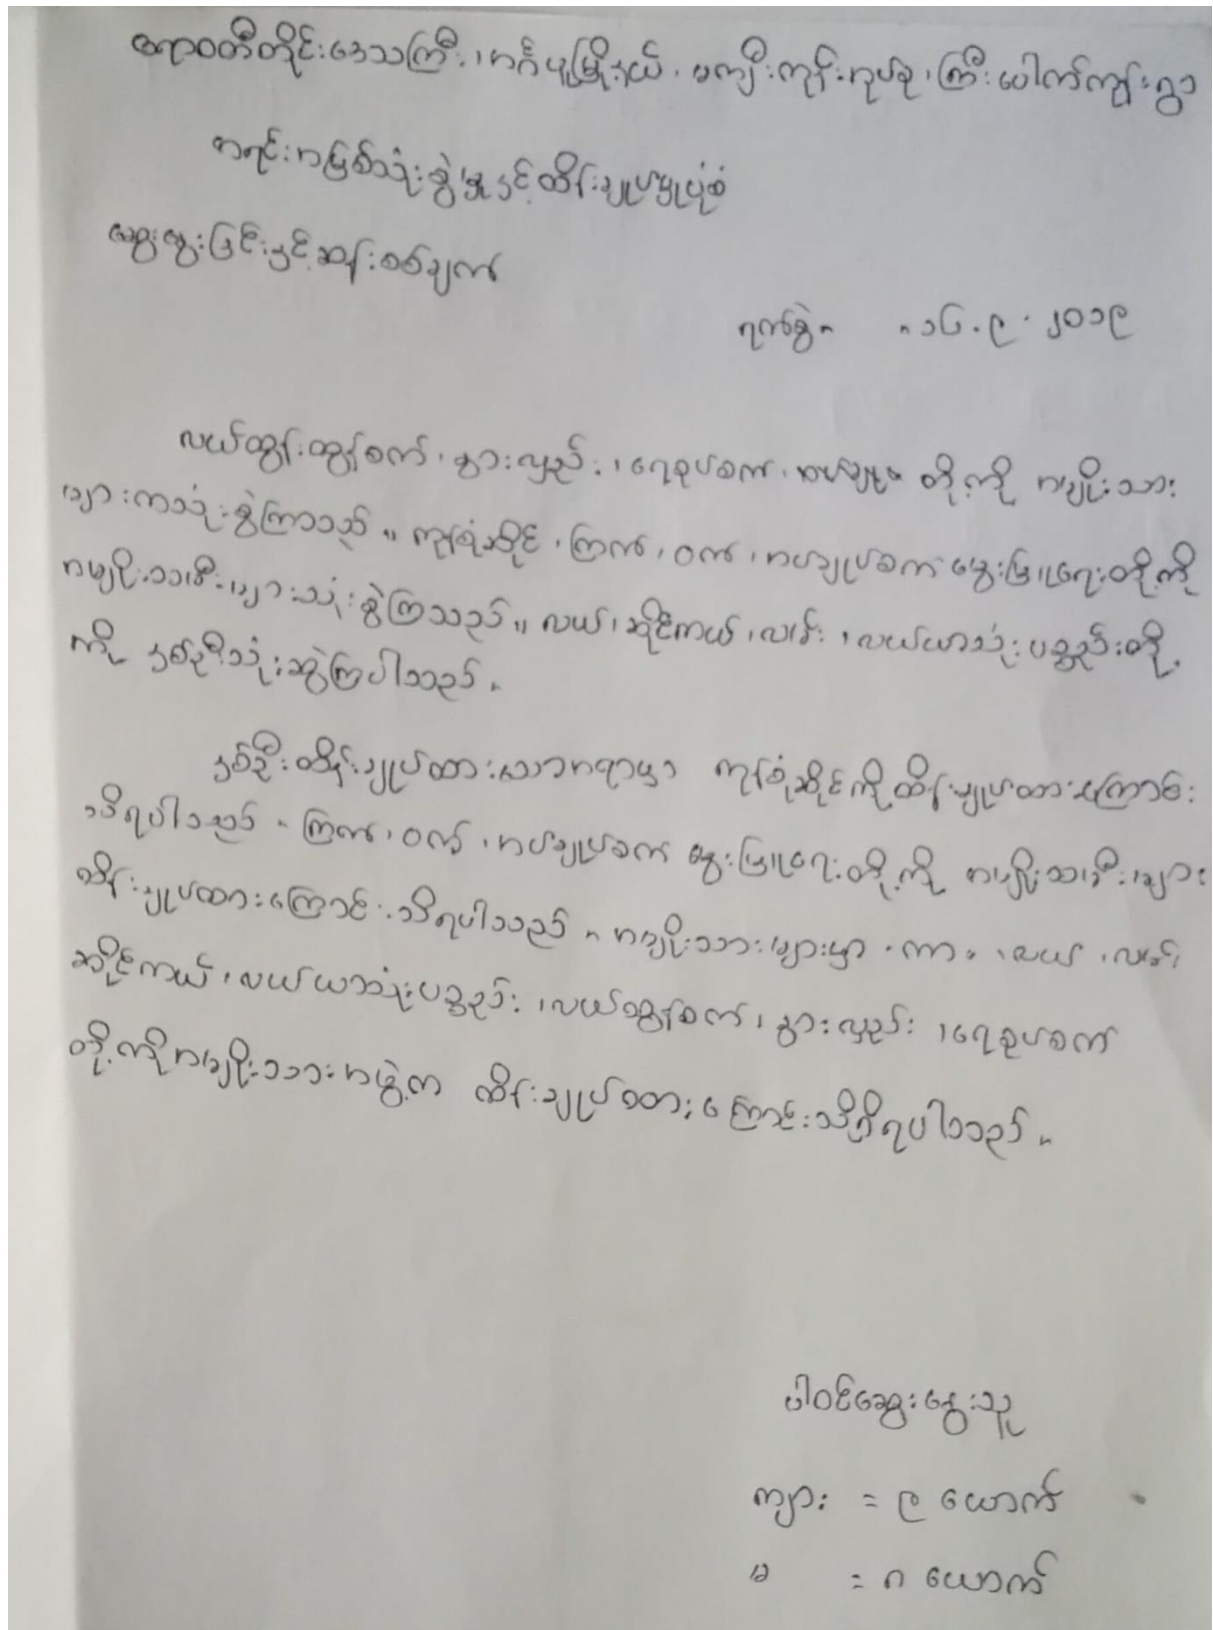 ဧရာဝတီတိုင်းဒေသကြီး၊ အင်္ဂပူမြို့နယ်၊ မကျီးကုန်းအုပ်စု၊ ကြီးပေါက်ကျွန်းရွာ
အရင်းအမြစ်သုံးစွဲမှုနှင့်ထိန်းချုပ်မှုပုံစံ
ဆွေးနွေးခြင်းနှင့်ဆန်းစစ်ချက်
ရက်စွဲ။ ။ ၁၆.၉.၂၀၁၉
လယ်ထွန်းထွန်စက်၊ နွားလှည်း၊ ရေစုပ်စက်၊ တို့ကို အမျိုးသား
များကသုံးစွဲကြသည်။ ကုန်စုံဆိုင်၊ ကြက်၊ ဝက်၊ အပ်ချုပ်စက် မွေးမြူရေးတို့ကို
အမျိုးသမီးများသုံးစွဲကြသည်။ လယ်၊ ဆိုင်ကယ်၊ လမ်း၊ လယ်ယာသုံးပစ္စည်းတို့
ကို နှစ်ဦးသုံးဆွဲကြပါသည်။
နှစ်ဦးထိန်းချုပ်ထားသောအရာမှာ ကုန်စုံဆိုင်ကိုထိန်းချုပ်ထားကြောင်း
သိရပါသည်။ ကြက်၊ ဝက်၊ အပ်ချုပ်စက် မွေးမြူရေးတို့ကို အမျိုးသမီးများ
ထိန်းချုပ်ထားကြောင်းသိရပါသည်။ အမျိုးသားများမှာ ကား၊ လယ်၊ လမ်း၊
ဆိုင်ကယ်၊ လယ်ယာသုံးပစ္စည်း၊ လယ်ထွန်စက်၊ နွားလှည်း၊ ရေစုပ်စက်
တို့ကိုအမျိုးသားအဖွဲ့က ထိန်းချုပ်ထားကြောင်းသိရှိရပါသည်။
ပါဝင်ဆွေးနွေးသူ
ကျား = ၉ ယောက်
မ = ၈ ယောက်